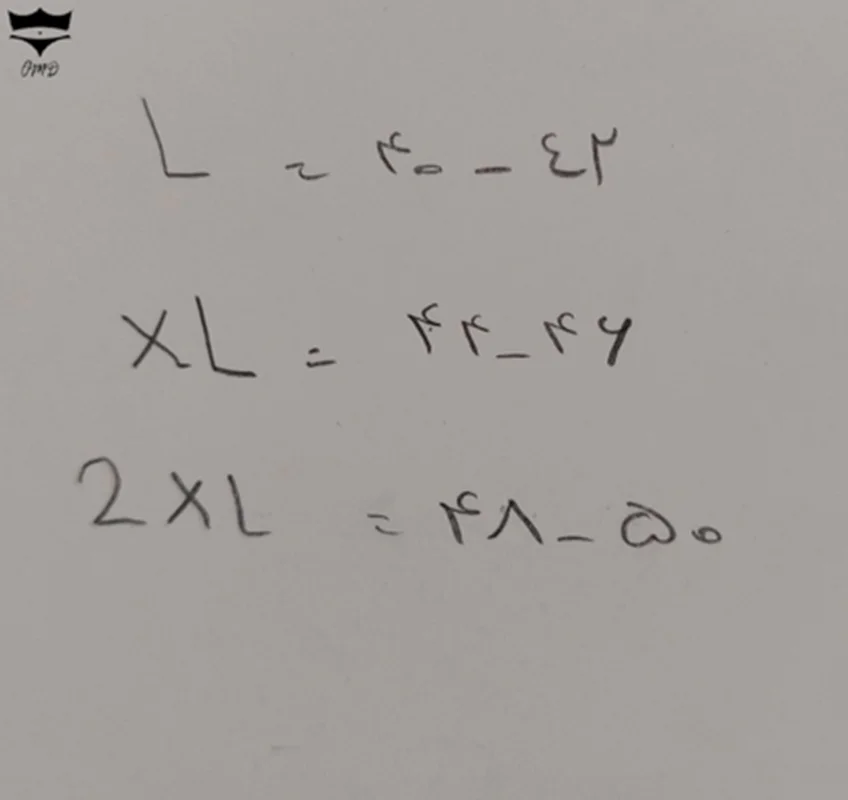 OMD
L = ۴۰ - ٤٢
XL = ۴۴ - ۴۶
2XL = ۴۸ - ۵۰